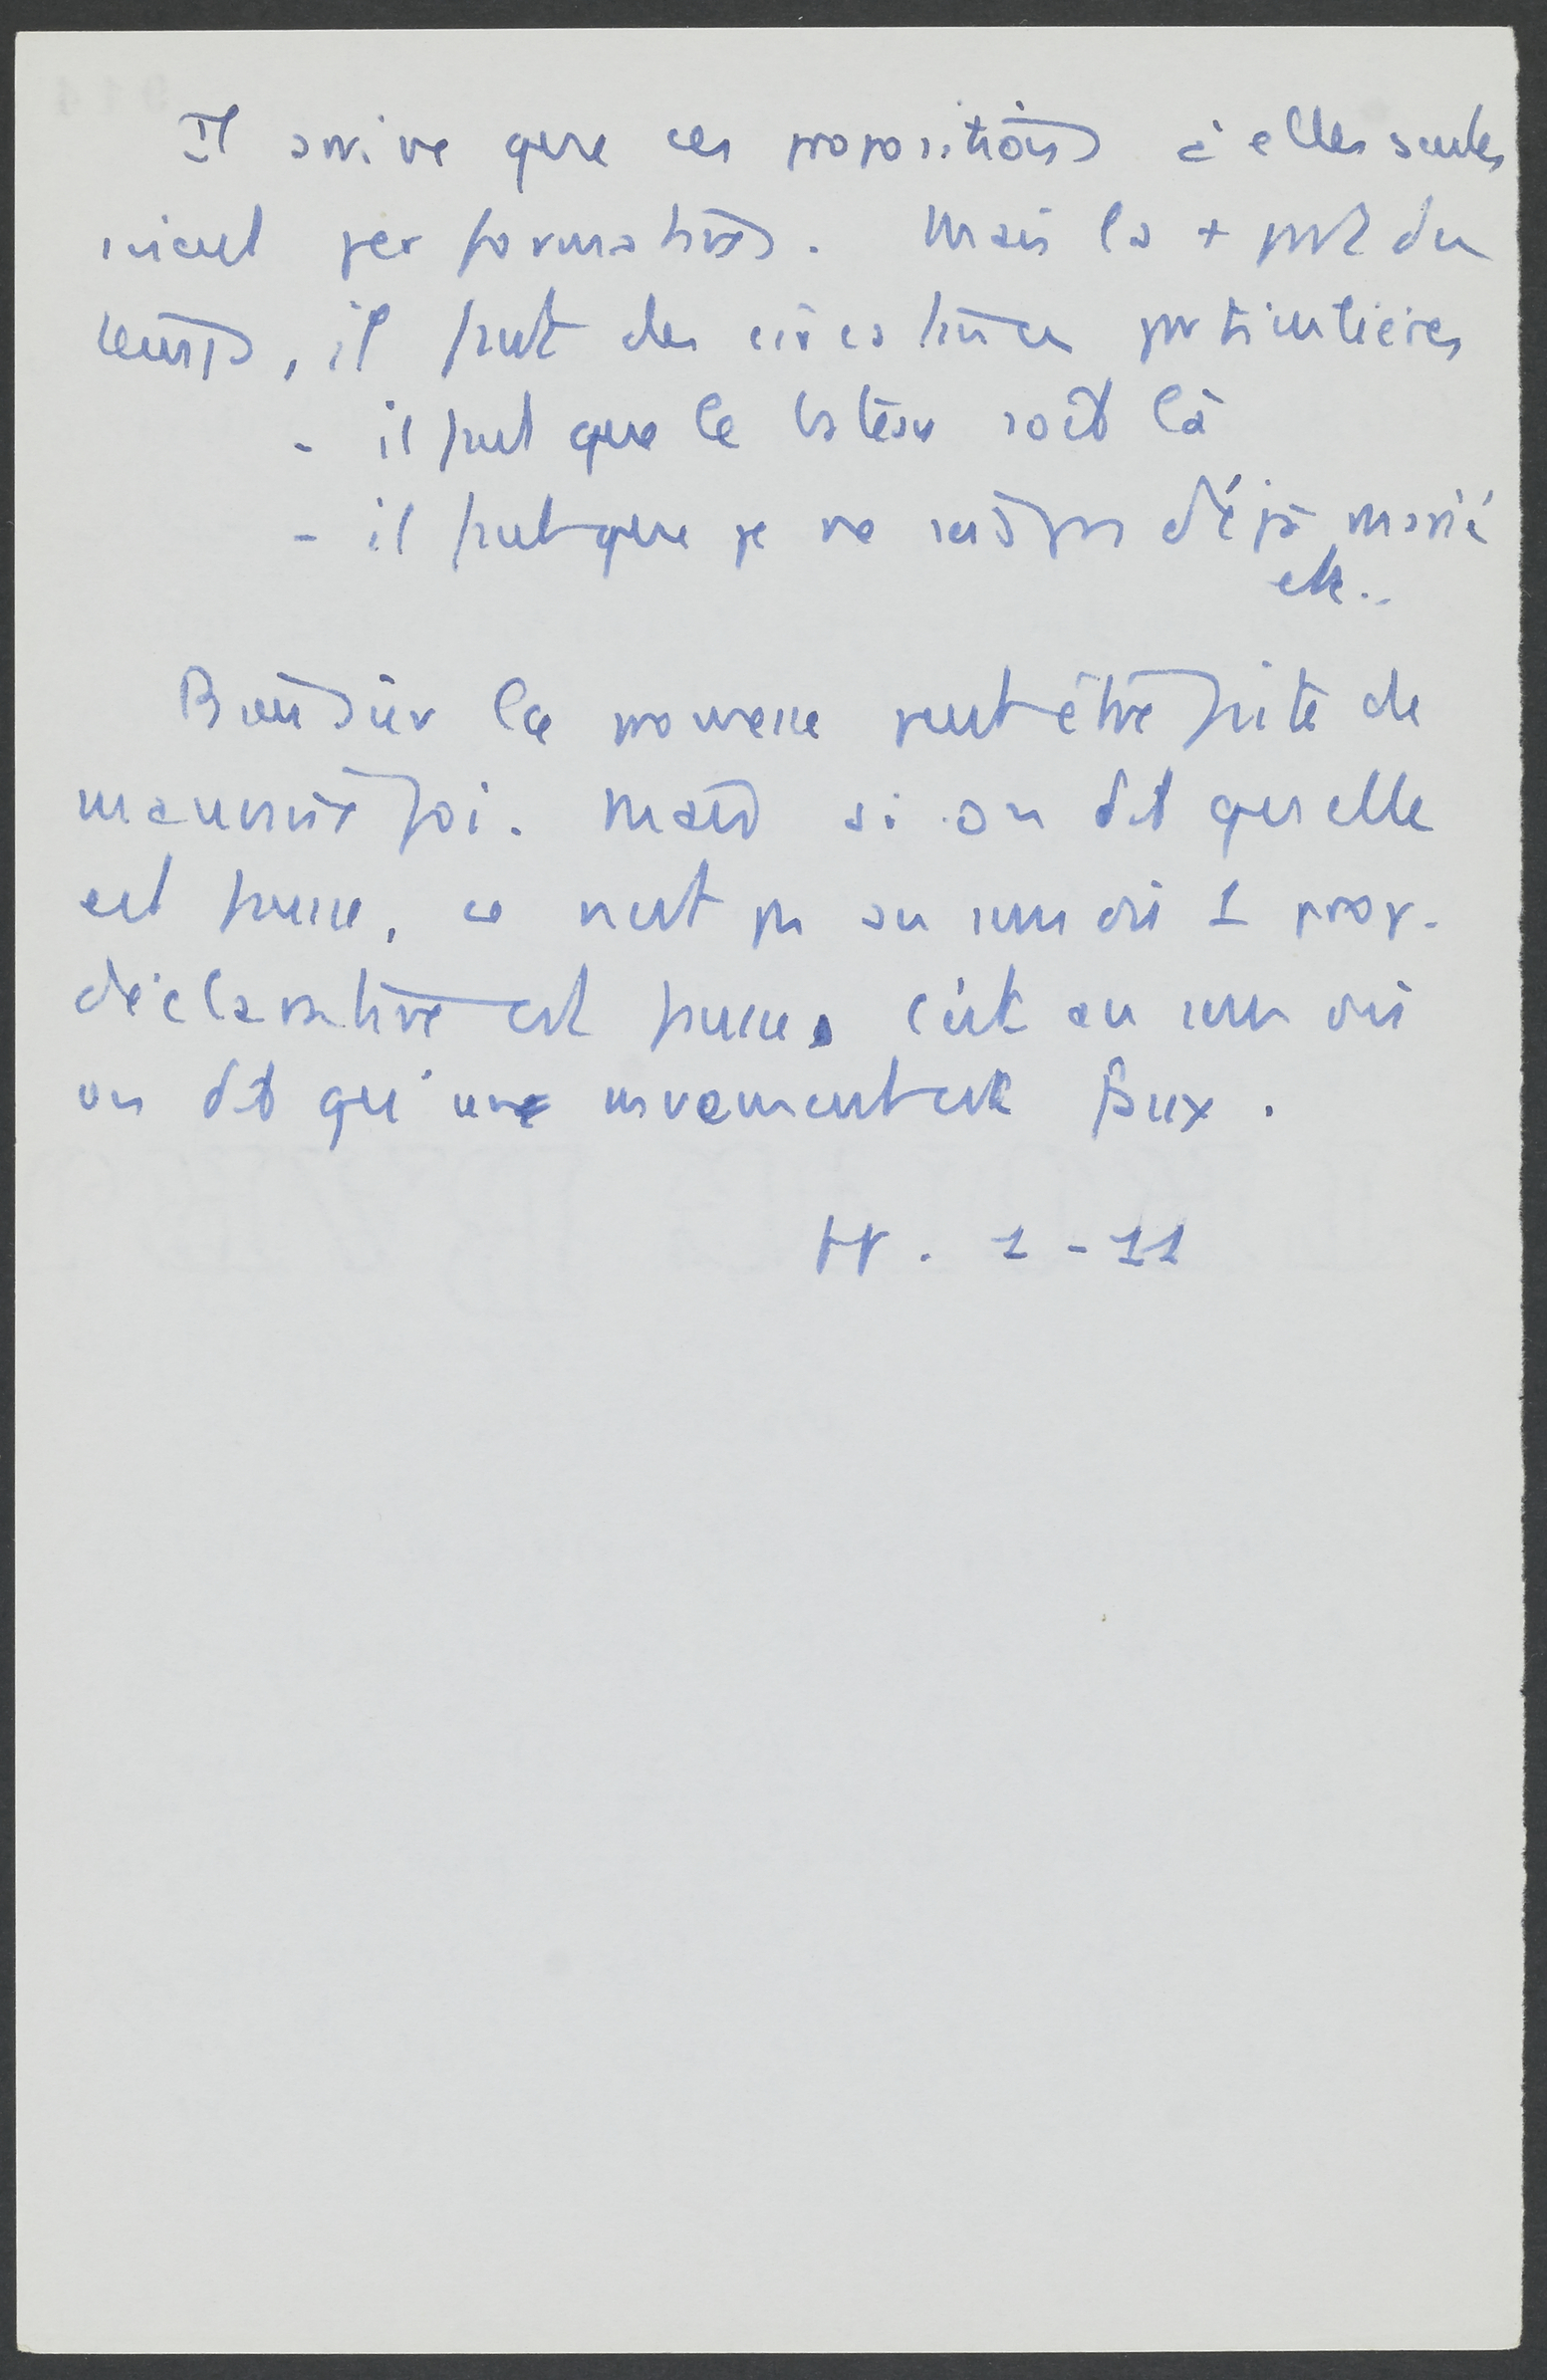 Il arrive que ces propositions à elles seules
soient performatives. Mais la + part du
temps, il faut des circonstances particulières
- il faut que le bateau soit là
- il faut que je ne sois pas déjà marié
etc..
Bien sûr la promesse peut être faite de
mauvaise foi. Mais si on dit qu'elle
est fausse, ce n'est pas au sens où 1 prop.
déclarative est fausse, c'est au sens où
on dit qu'un mouvement est faux.
1-11